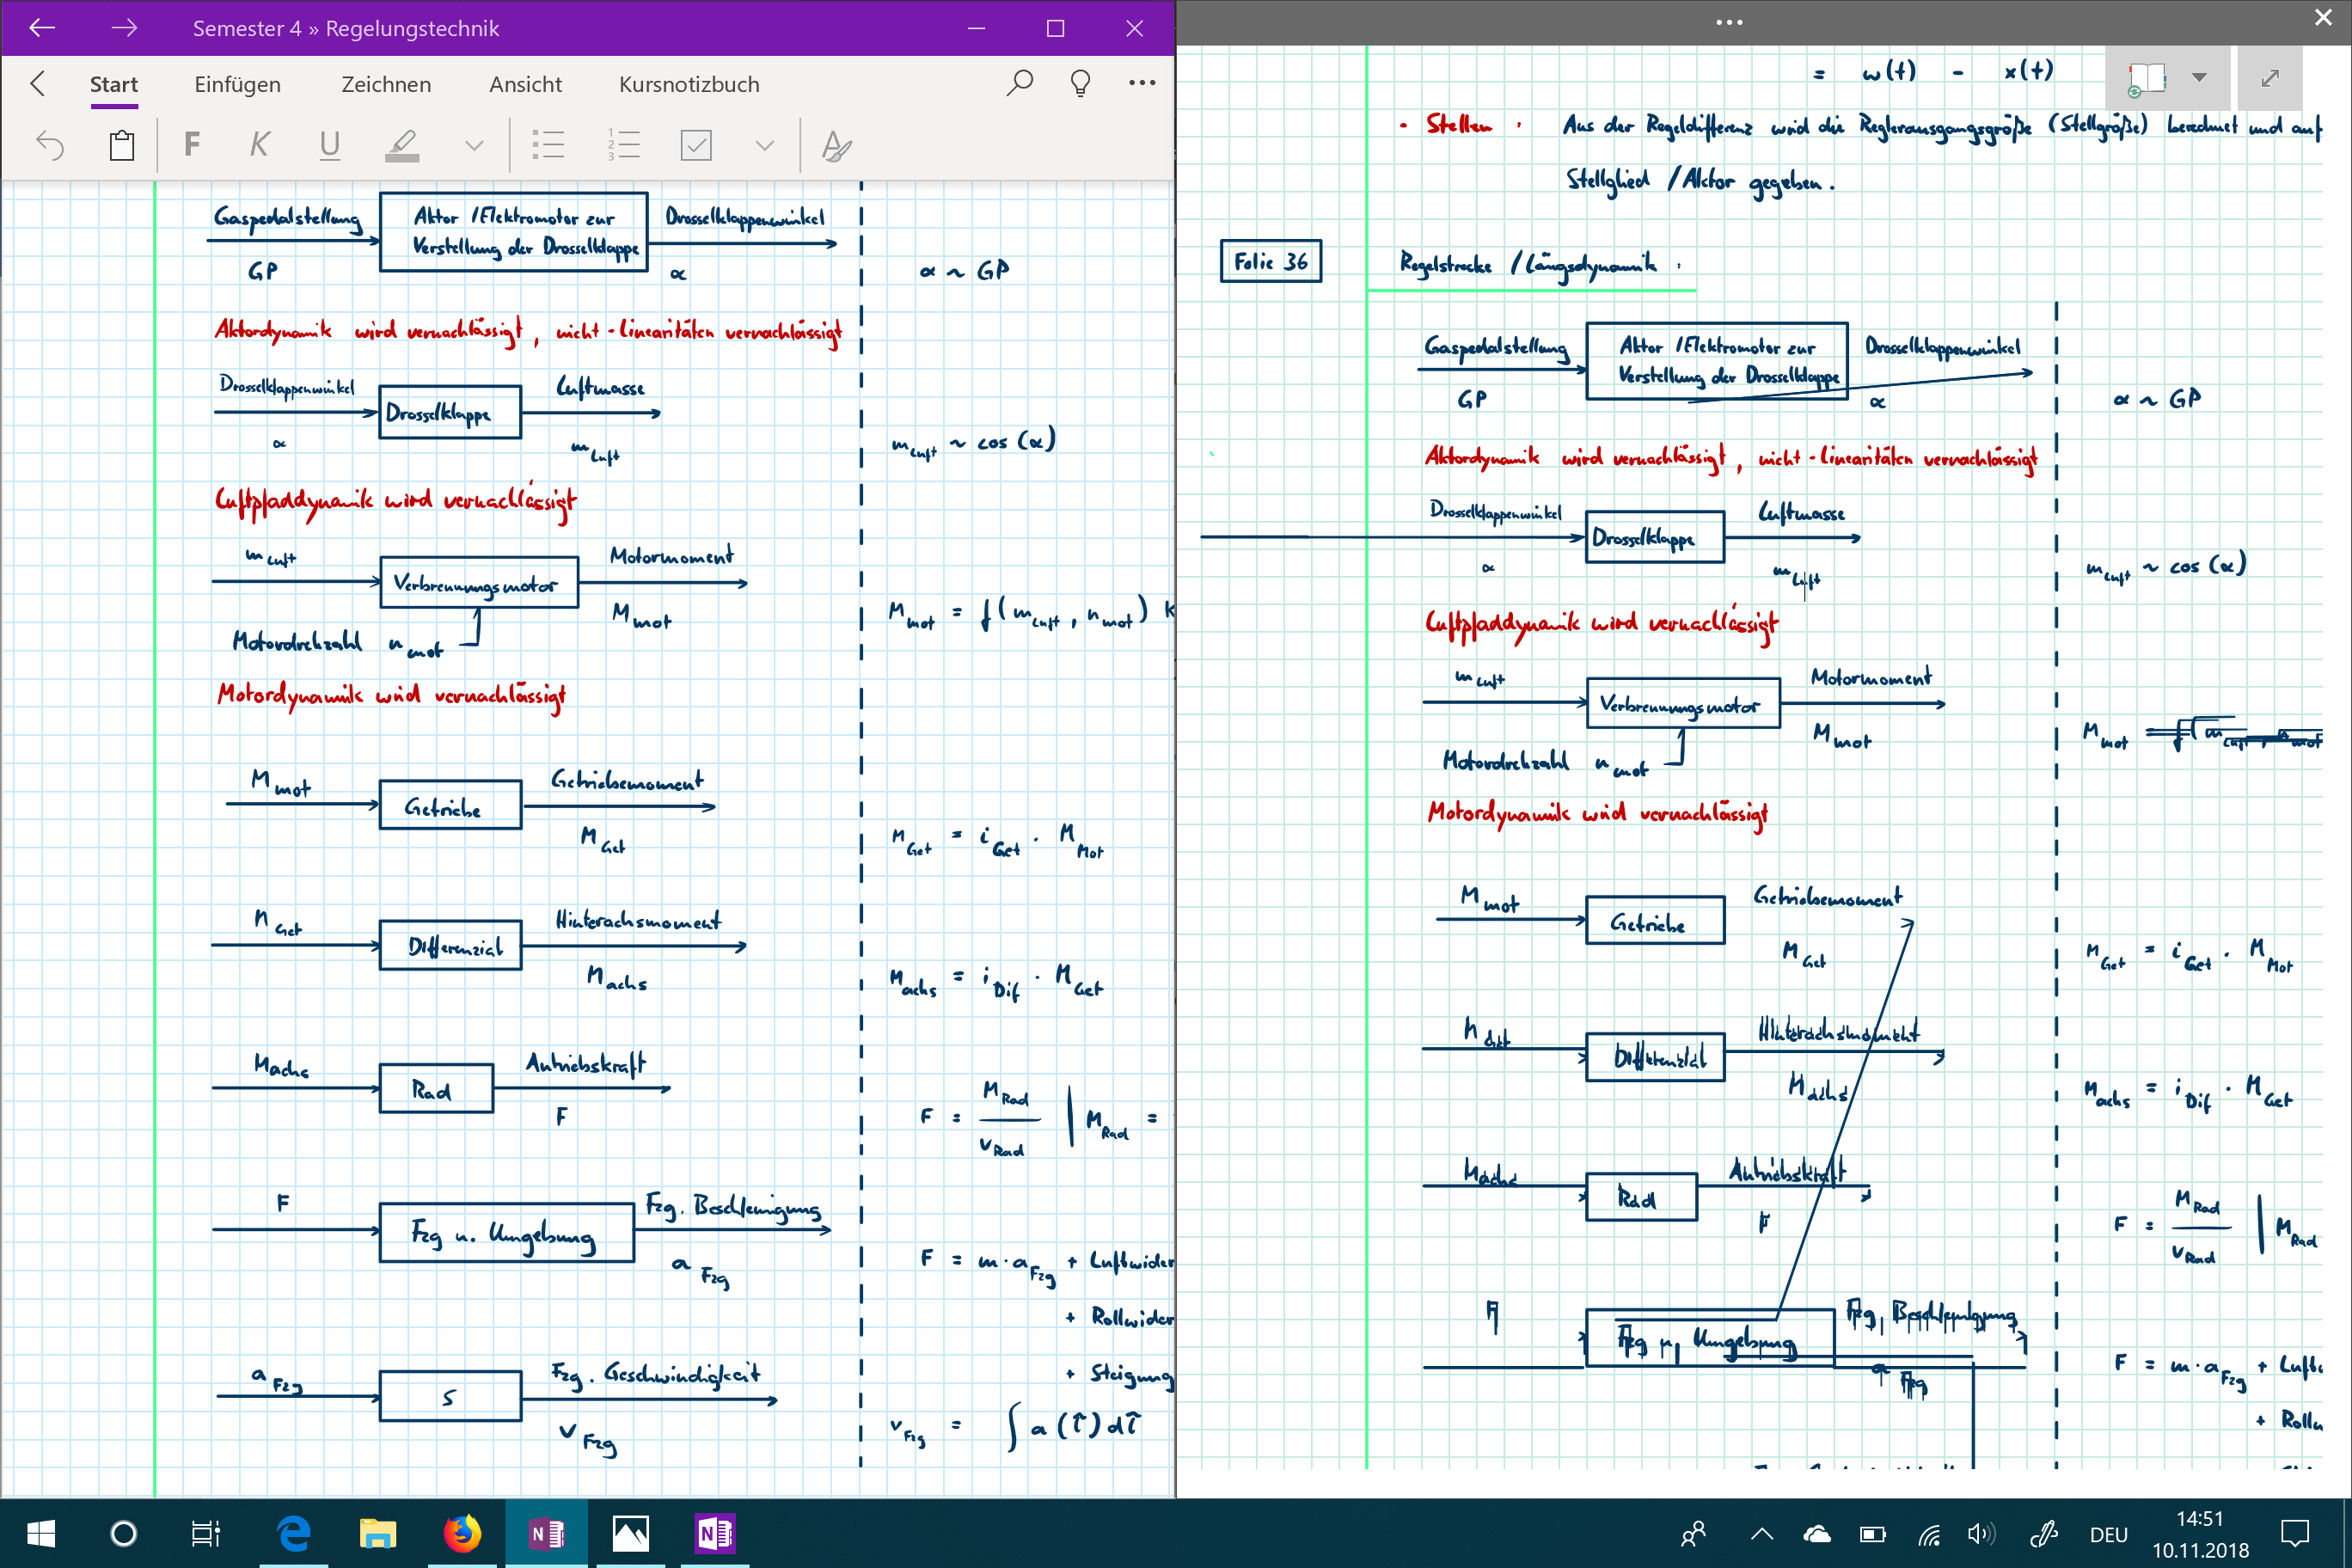 Semester 4 » Regelungstechnik
Start Einfügen Zeichnen Ansicht Kursnotizbuch
F K U
Gaspedalstellung
GP
Aktor / Elektromotor zur
Verstellung der Drosselklappe
Drosselklappenwinkel
α
α ~ GP
Aktordynamik wird vernachlässigt, nicht-linearitäten vernachlässigt
Drosselklappenwinkel
α
Drosselklappe
Luftmasse
m Luft
m Luft ~ cos (α)
Luftpfaddynamik wird vernachlässigt
m Luft
Verbrennungsmotor
Motormoment
M mot
Motordrehzahl n mot
M mot = f (m Luft, n mot) K
Motordynamik wird vernachlässigt
M mot
Getriebe
Getriebemoment
M Get
M Get = i Get · M Mot
M Get
Differenzial
Hinterachsmoment
M achs
M achs = i Dif · M Get
M achs
Rad
Antriebskraft
F
F = M Rad / v Rad | M Rad =
F
Fzg u. Umgebung
Fzg. Beschleunigung
a Fzg
F = m · a Fzg + Luftwider
+ Rollwider
+ Steigung
a Fzg
S
Fzg. Geschwindigkeit
v Fzg
v Fzg = ∫ a (τ) dτ
= w(t) - x(t)
- Stellen : Aus der Regeldifferenz wird die Reglerausgangsgröße (Stellgröße) berechnet und auf
Stellglied / Aktor gegeben.
Folie 36
Regelstrecke / Längsdynamik :
Gaspedalstellung
GP
Aktor / Elektromotor zur
Verstellung der Drosselklappe
Drosselklappenwinkel
α
α ~ GP
Aktordynamik wird vernachlässigt, nicht-linearitäten vernachlässigt
Drosselklappenwinkel
α
Drosselklappe
Luftmasse
m Luft
m Luft ~ cos (α)
Luftpfaddynamik wird vernachlässigt
m Luft
Verbrennungsmotor
Motormoment
M mot
Motordrehzahl n mot
M mot = f (m Luft, n mot
Motordynamik wird vernachlässigt
M mot
Getriebe
Getriebemoment
M Get
M Get = i Get · M Mot
M Get
Differenzial
Hinterachsmoment
M achs
M achs = i Dif · M Get
M achs
Rad
Antriebskraft
F
F = M Rad / v Rad | M Rad
F
Fzg u. Umgebung
Fzg. Beschleunigung
a Fzg
F = m · a Fzg + Luftw
+ Rollw
DEU
14:51
10.11.2018